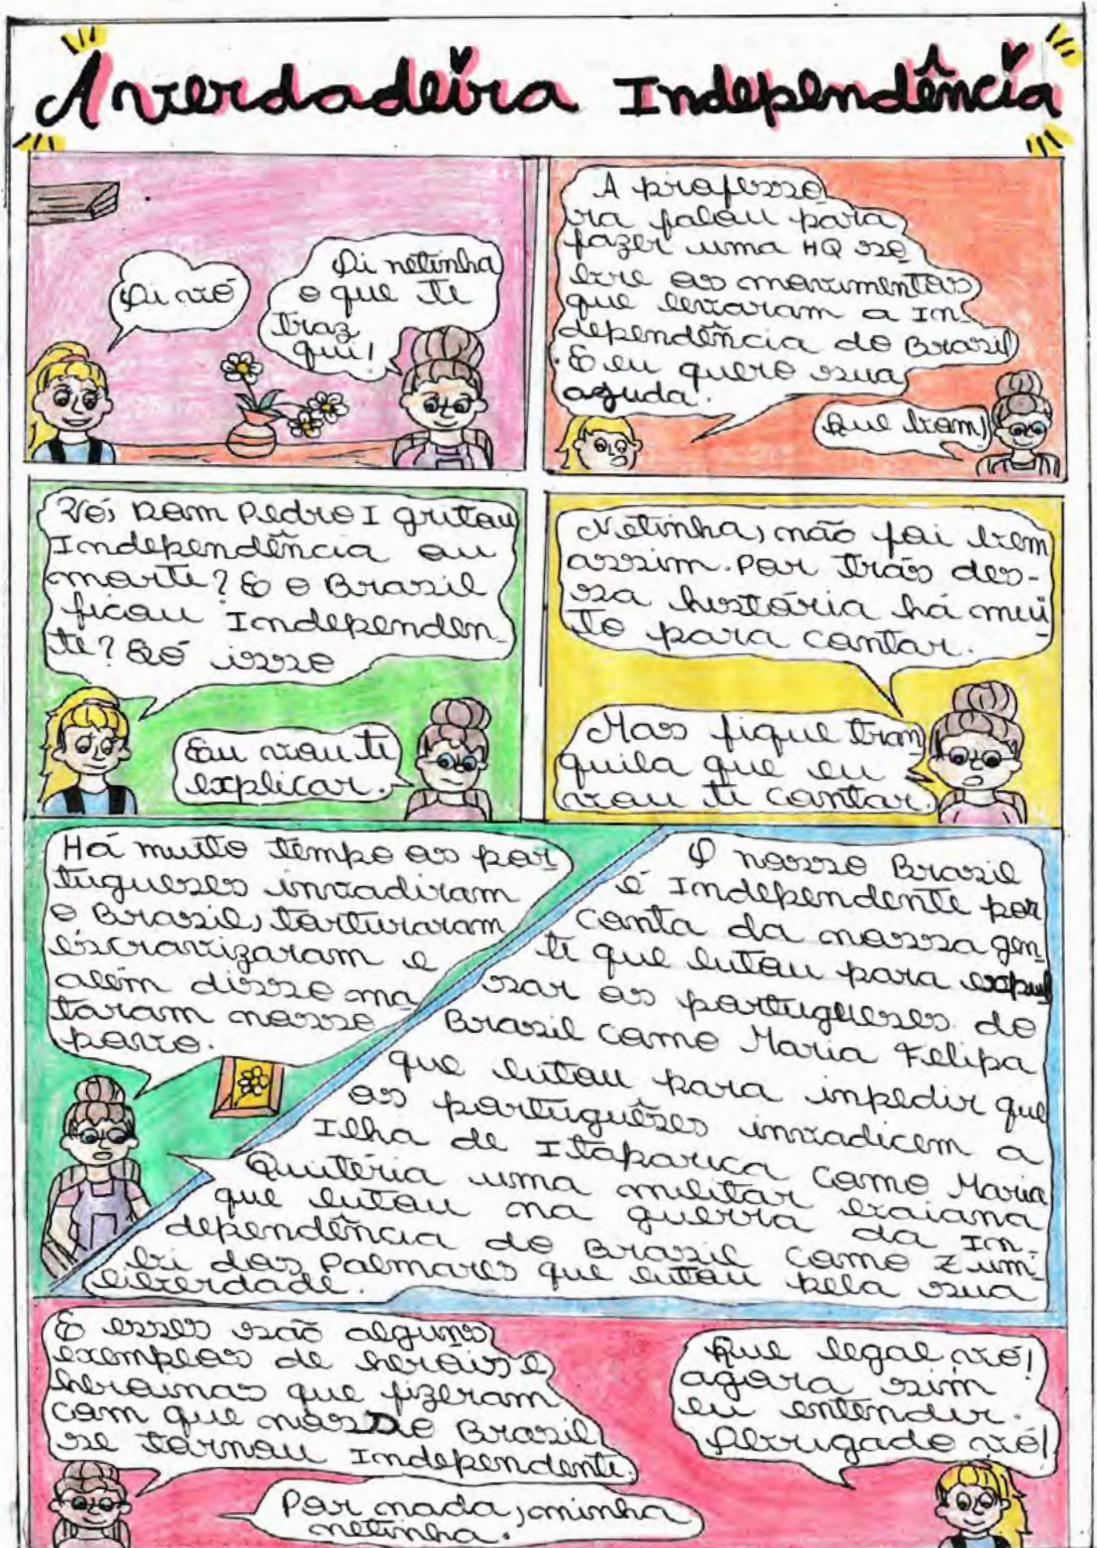 A verdadeira Independência
Oi vó
Oi netinha
o que te
traz
qui!
A professo
ra falou para
fazer uma HQ so
bre os movimentos
que levaram a In-
dependência do Brasil
. E eu quero sua
ajuda.
Que bom!
Vó, Dom Pedro I gritou
Independência ou
morte? E o Brasil
ficou Independen-
te? Só isso
Eu vou te
explicar.
Netinha, não foi bem
assim. Por trás des-
sa história há mui
to para contar.
Mas fique tran
quila que eu
vou te contar.
Há muito tempo os por
tugueses invadiram
o Brasil, torturaram
escravizaram e
além disso ma
taram nosso
povo.
O nosso Brasil
é Independente por
conta da nossa gen
te que lutou para expul
sar os portugueses do
Brasil como Maria Felipa
que lutou para impedir que
os portuguêses invadicem a
Ilha de Itaparica como Maria
Quitéria uma militar baiana
que lutou na guerra da In-
dependência do Brasil como Zum-
bi dos Palmares que lutou pela sua
liberdade.
E esses são alguns
exemplos de heróis e
heroinas que fizeram
com que nosso Brasil
se tornou Independente.
Que legal vó!
agora sim
eu entendir.
Obrigado vó!
Por nada, minha
netinha.